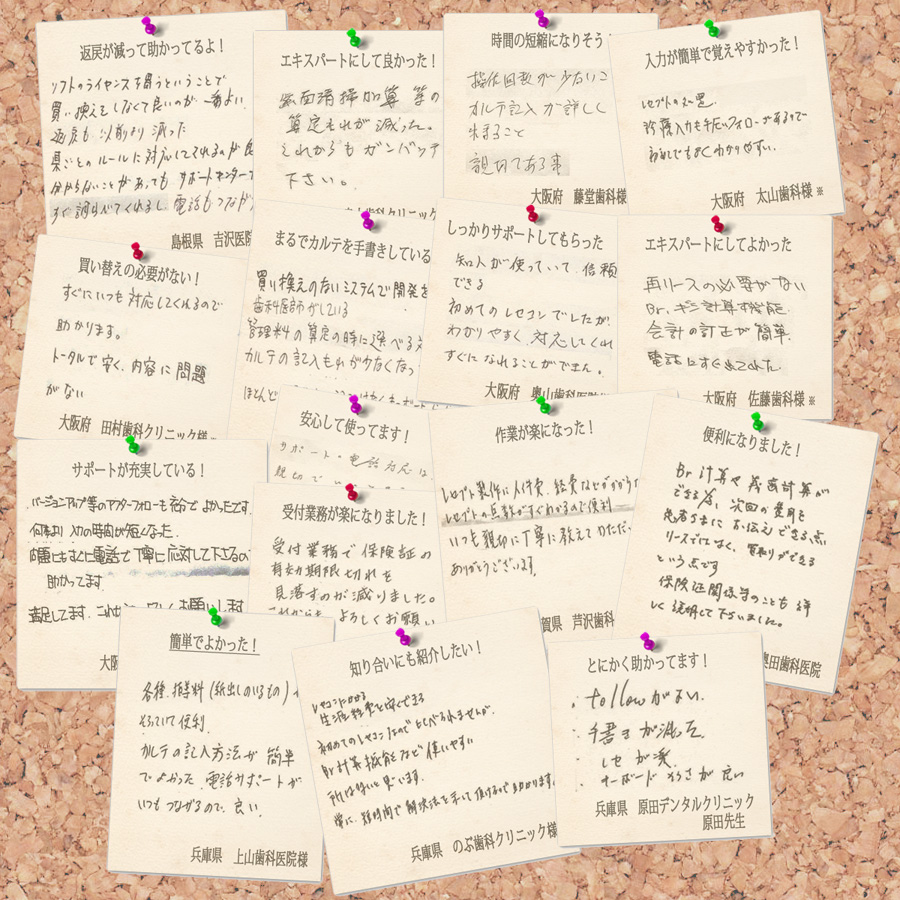 返戻が減って助かってるよ！
ソフトのライセンスを買うということで
買い換えをしなくて良いのが一番よい。
返戻も以前より減った
県ごとのルールに対応してくれるのが良
分からないことがあっても サポートセンターで
すぐ調らべてくれるし 電話もつながり
島根県 吉沢医院
エキスパートにして良かった！
歯面清掃加算等の
算定もれが減った。
これからもガンバッテ
下さい。
歯科クリニック
時間の短縮になりそう！
操作回数が少ないこ
カルテ記入が詳しく
出来ること
親切である事
大阪府 藤堂歯科様
入力が簡単で覚えやすかった！
レセプトの処置、
診療入力も手広いフォローがあるので
初めてでもよくわかりやすい。
大阪府 太山歯科様※
買い替えの必要がない！
すぐにいつも対応してくれるので
助かります。
トータルで安く、内容に問題
がない
大阪府 田村歯科クリニック様※
まるでカルテを手書きしている
買い換えのないシステムで開発を
歯科医師がしている
管理料の算定の時に選べる文
カルテの記入もれが少なくなっ
ほとんど
しっかりサポートしてもらった
知人が使っていて、信頼
できる
初めてのレセコンでしたが、
わかりやすく、対応してくれ
すぐになれることができた。
大阪府 奥山歯科医院
エキスパートにしてよかった
再リースの必要がない
Br.ギシ計算す機能.
会計の訂正が簡単.
電話にすぐ出てくれた.
大阪府 佐藤歯科様※
サポートが充実している！
バージョンアップ等のアフターフォローも含めて よかったです
何より入力の時間が短くなった.
問題にもすぐに電話で丁寧に応対して下さるので
助かってます
満足してます.これからも よろしくお願いします
大阪
安心して使ってます！
サポート・電話対応は
親切で
受付業務が楽になりました！
受付業務で保険証の
有効期限切れを
見落すのが減りました。
これからも よろしくお願い
作業が楽になった！
レセプト製作に人件費、経費などがかからず
レセプトの点数がすぐわかるので便利
いつも親切に丁寧に教えていただい
ありがとうございます.
賀県 芦沢歯科
便利になりました！
Br計算や義歯計算が
できる為、次回の費用を
患者さまにお伝えできる点
リースでなく、買取りができる
という点です
保険証関係等のことも詳
しく説明して下さいました。
奥田歯科医院
簡単でよかった！
各種、指導料（紙出しのいるもの）が
そろっていて便利.
カルテの記入方法が 簡単
でよかった 電話サポートが
いつもつながるので、良い.
兵庫県 上山歯科医院様
知り合いにも紹介したい！
レセコンにかかる
生涯経費を安くできる
初めてのレセコンなので とくべられませんが、
Br計算機能など 使いやすい
所は多いと思います。
常に、短時間で解決法を示して頂けるので助かります.
兵庫県 のぶ歯科クリニック様
とにかく助かってます！
・followがよい.
・手書きが減った.
・レセが楽
・キーボード打つさが良い
兵庫県 原田デンタルクリニック
原田先生